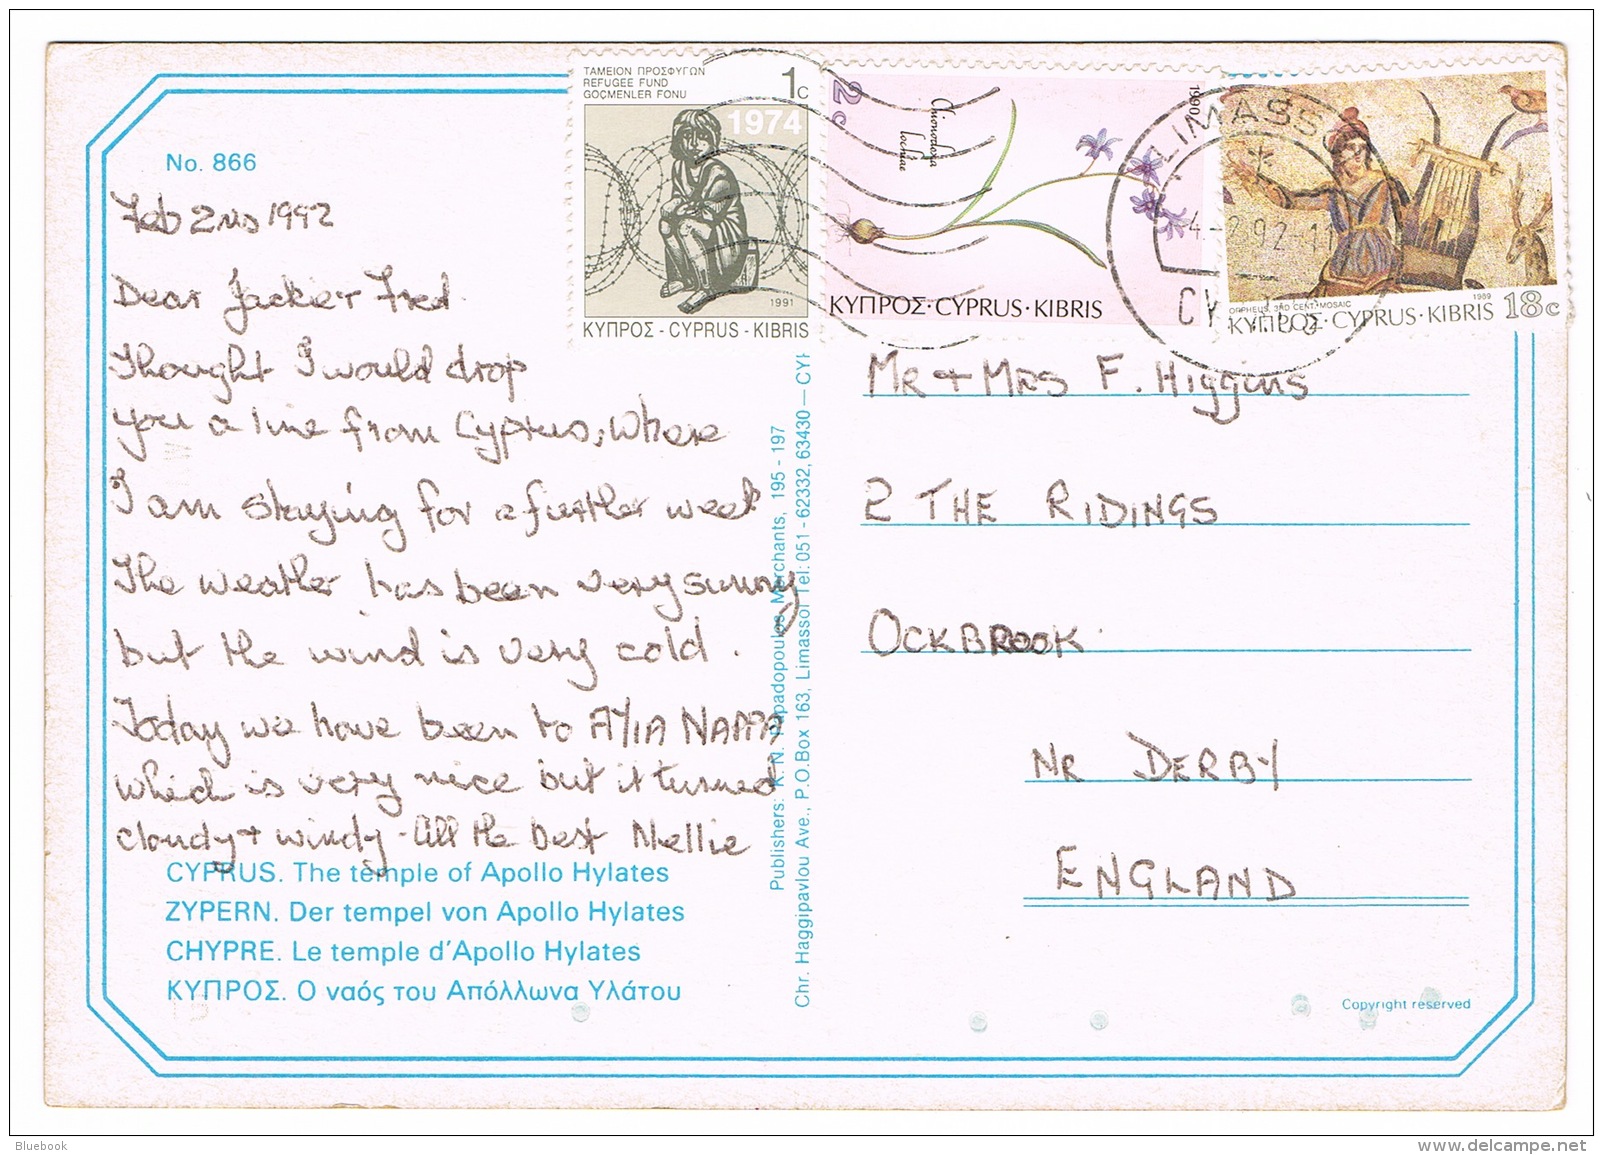 ΤΑΜΕΙΟΝ ΠΡΟΣΦΥΓΩΝ
REFUGEE FUND
GOÇMENLER FONU
1c
1974
1991
ΚΥΠΡΟΣ - CYPRUS - KIBRIS
2c
Chionodoxa
lochiae
1990
ΚΥΠΡΟΣ · CYPRUS · KIBRIS
ORPHEUS, 3RD CENT. MOSAIC
1989
ΚΥΠΡΟΣ · CYPRUS · KIBRIS 18c
LIMASS
4-2.92-11
CY
No. 866
Feb 2ND 1992
Dear Jackie + Fred.
Thought I would drop
you a line from Cyprus, where
I am staying for a further week
The weather has been very sunny
but the wind is very cold.
Today we have been to AYIA NAPPA
which is very nice but it turned
cloudy + windy - All the best Nellie
CYPRUS. The temple of Apollo Hylates
ZYPERN. Der tempel von Apollo Hylates
CHYPRE. Le temple d'Apollo Hylates
ΚΥΠΡΟΣ. Ο ναός του Απόλλωνα Υλάτου
Publishers: K. N. Papadopoulos Merchants, 195 - 197
Chr. Haggipavlou Ave., P.O.Box 163, Limassol Tel: 051 - 62332, 63430 — CYP
MR + MRS F. Higgins
2 THE RIDINGS
OCKBROOK.
NR DERBY
ENGLAND
Copyright reserved
Bluebook
www.delcampe.net